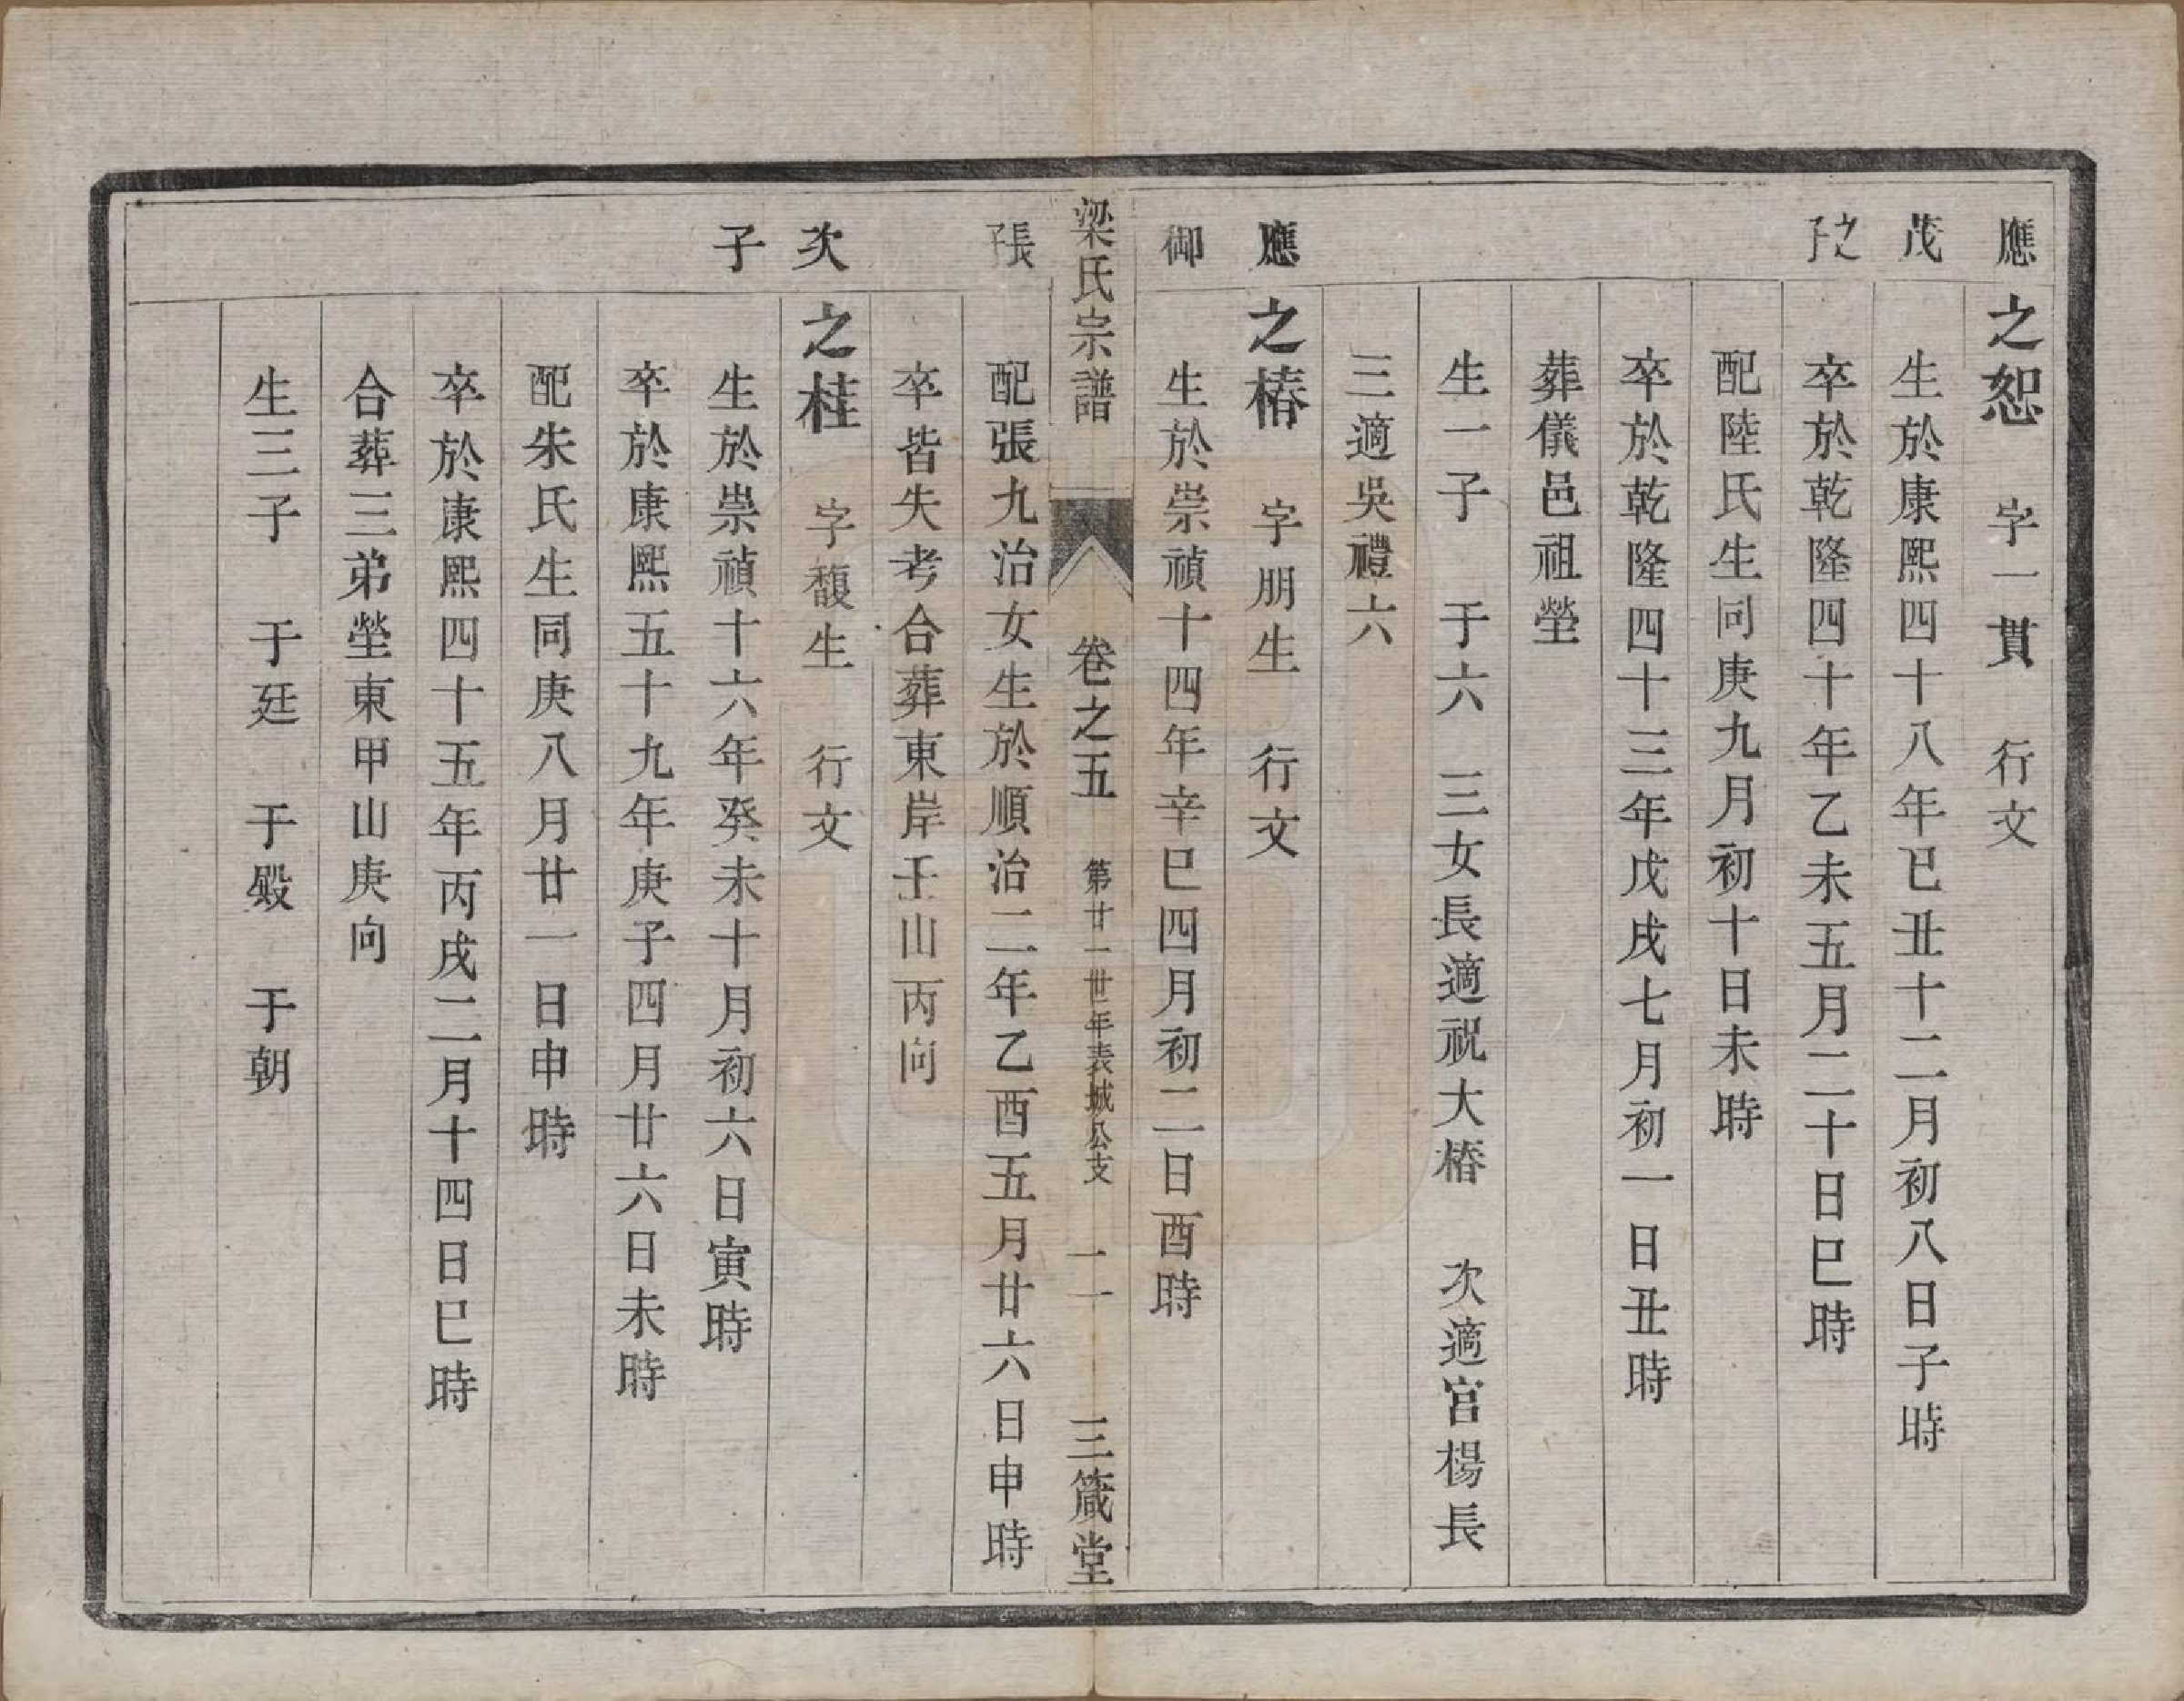 應　之恕　字一貫　行文
茂　生於康熙四十八年巳丑十二月初八日子時
之子　卒於乾隆四十年乙未五月二十日巳時
配陸氏生同庚九月初十日未時
卒於乾隆四十三年戊戌七月初一日丑時
葬儀邑祖塋
生一子　于六　三女長適祝大椿　次適宮楊長
三適吳禮六
應　之椿　字朋生　行文
御　生於崇禎十四年辛巳四月初二日酉時
梁氏宗譜　卷之五　第廿一世年表城公支　一一　三箴堂
長子　配張九治女生於順治二年乙酉五月廿六日申時
卒皆失考合葬東岸壬山丙向
次　之桂　字馥生　行文
子　生於崇禎十六年癸未十月初六日寅時
卒於康熙五十九年庚子四月廿六日未時
配朱氏生同庚八月廿一日申時
卒於康熙四十五年丙戌二月十四日巳時
合葬三弟塋東甲山庚向
生三子　于廷　于殿　于朝